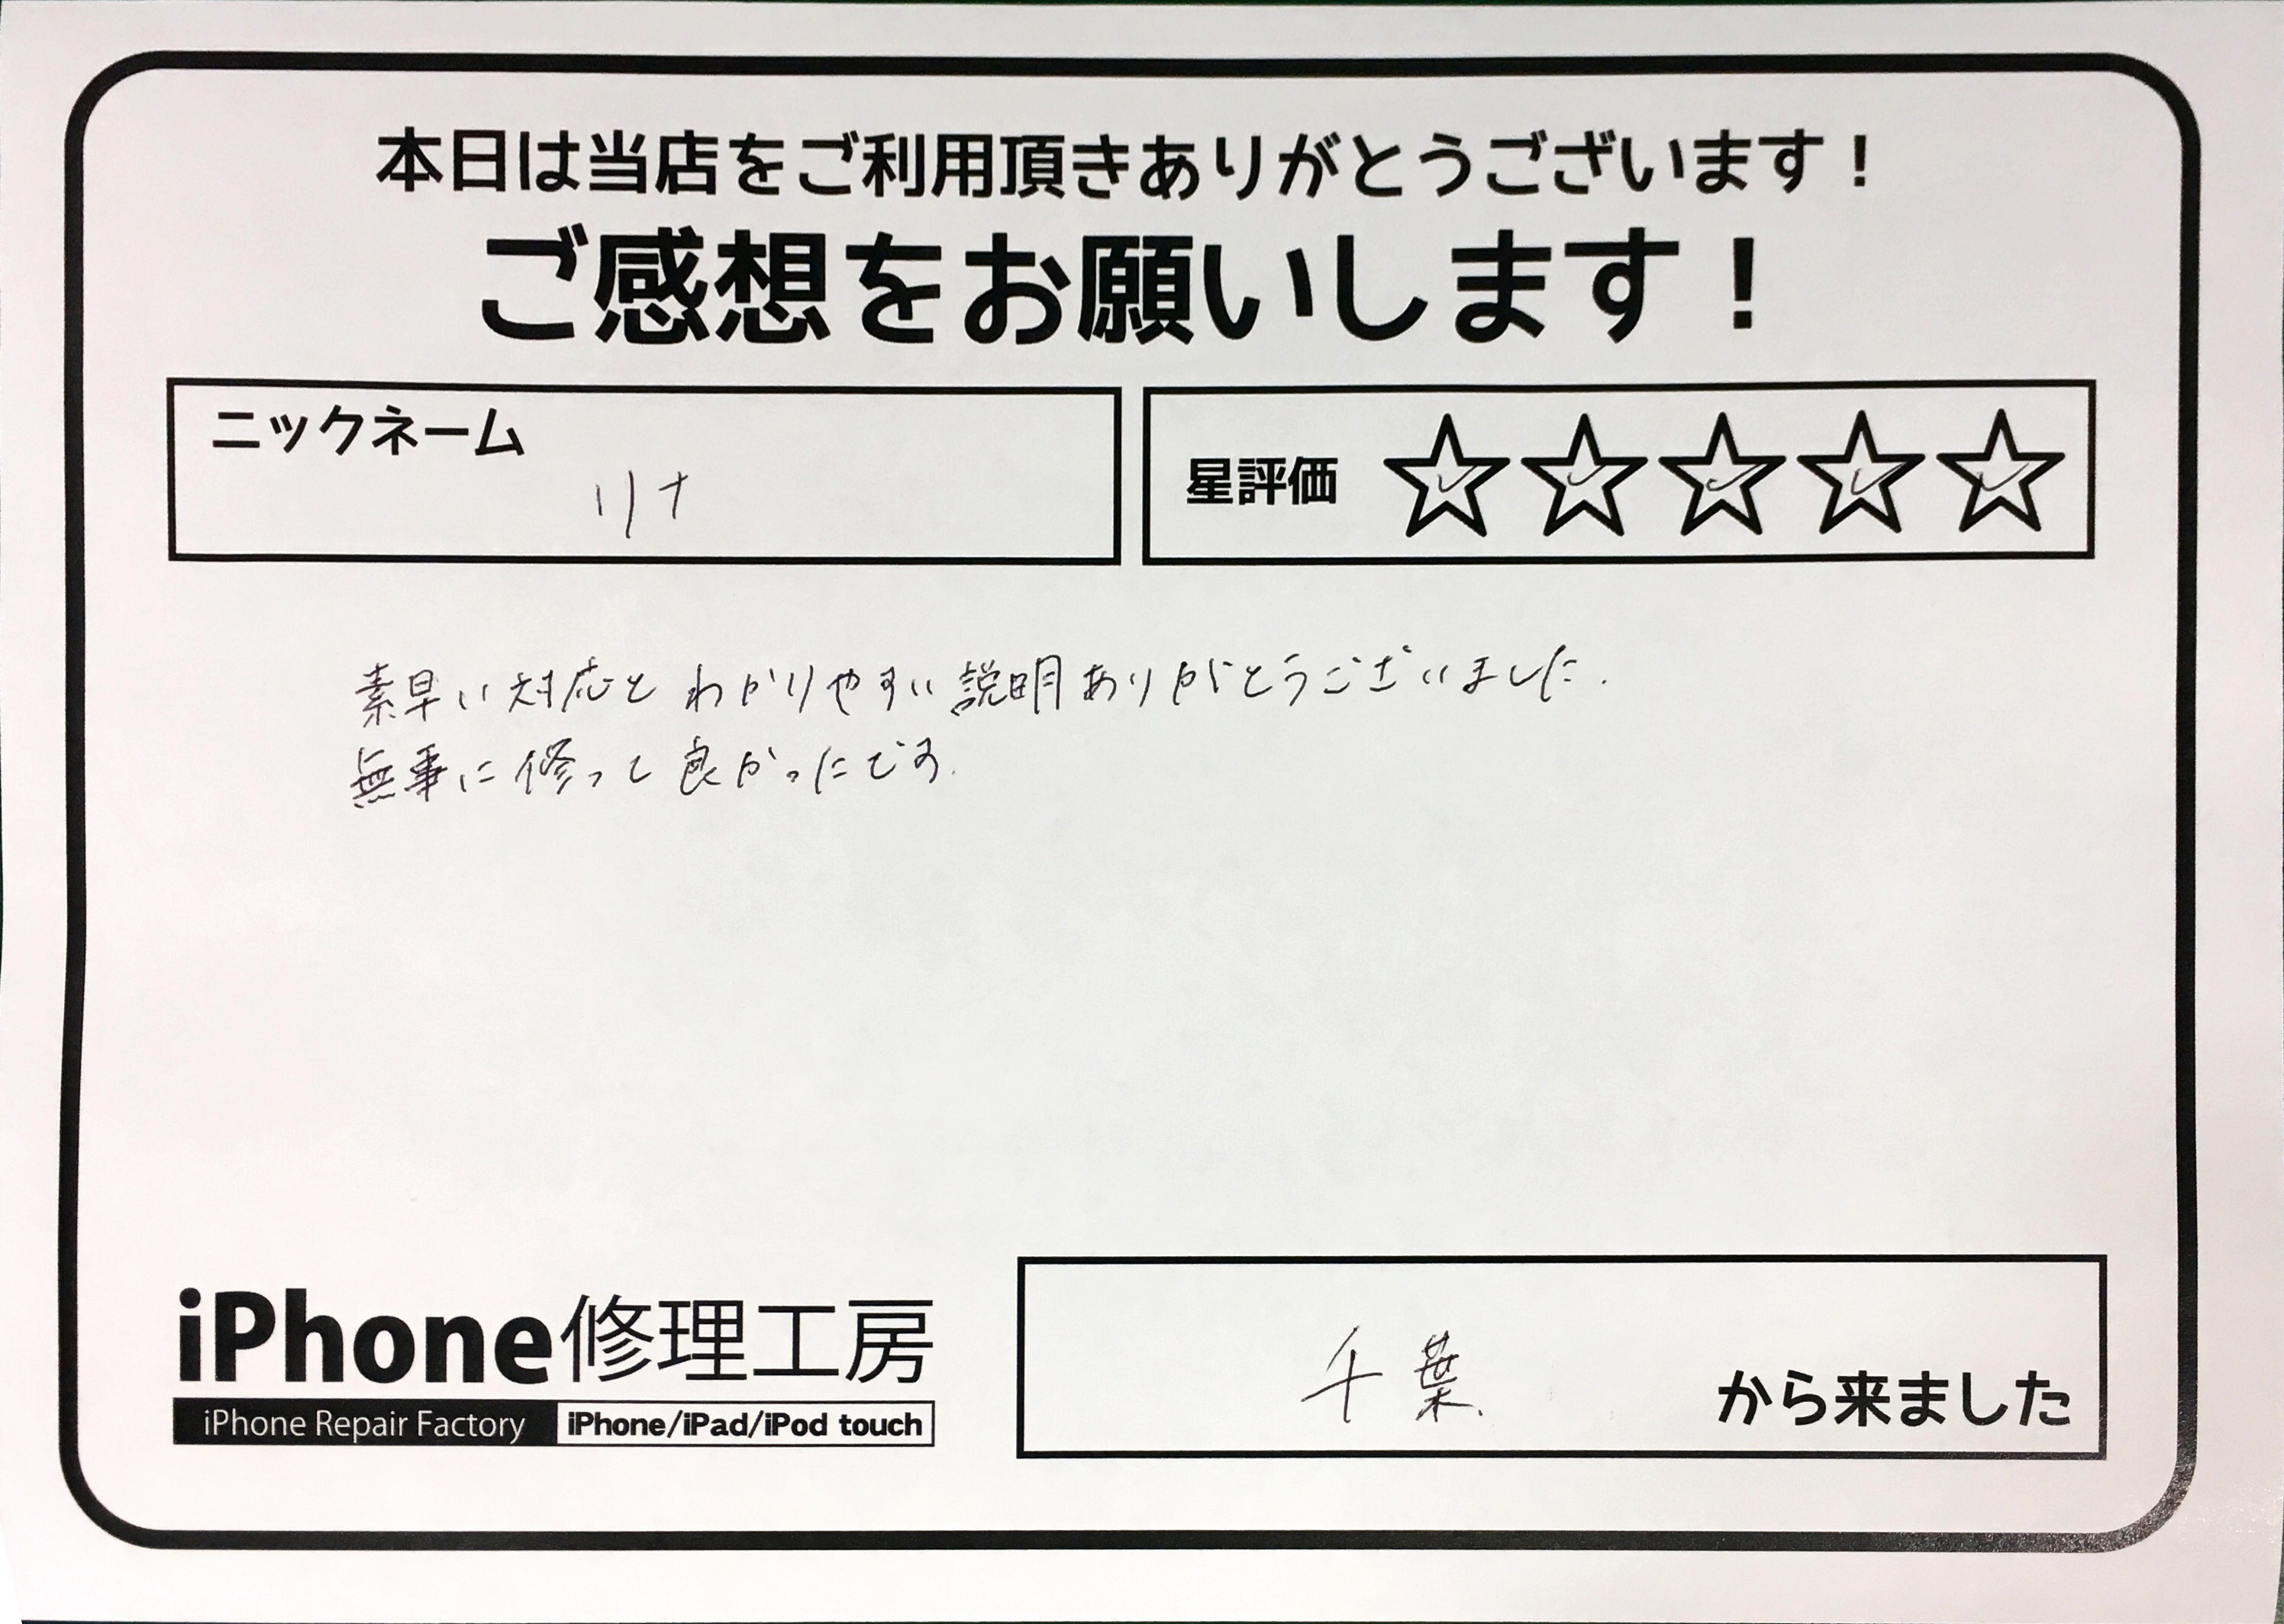 本日は当店をご利用頂きありがとうございます！
ご感想をお願いします！
ニックネーム
リナ
星評価 ☆☆☆☆☆
素早い対応とわかりやすい説明ありがとうございました.
無事に修って良かったです.
iPhone修理工房
iPhone Repair Factory iPhone/iPad/iPod touch
千葉. から来ました